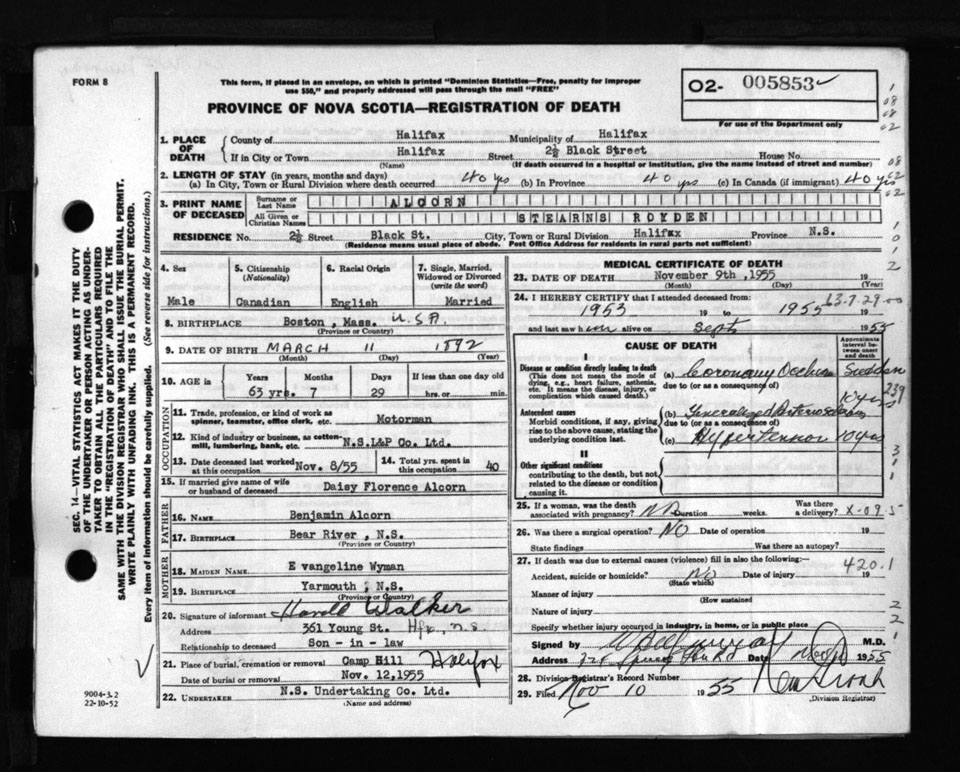 FORM 8
This form, if placed in an envelope, on which is printed "Dominion Statistics—Free, penalty for improper
use $50," and properly addressed will pass through the mail "FREE"
PROVINCE OF NOVA SCOTIA—REGISTRATION OF DEATH
02- 005853
For use of the Department only
1. PLACE OF DEATH
County of Halifax Municipality of Halifax
If in City or Town Halifax Street 2½ Black Street House No.
(Name) (If death occurred in a hospital or institution, give the name instead of street and number)
2. LENGTH OF STAY (in years, months and days)
(a) In City, Town or Rural Division where death occurred 40 yrs (b) In Province 40 yrs (c) In Canada (if immigrant) 40 yrs
3. PRINT NAME OF DECEASED
Surname or Last Name ALCORN
All Given or Christian Names STEARNS ROYDEN
RESIDENCE No. 2½ Street Black St. City, Town or Rural Division Halifax Province N.S.
(Residence means usual place of abode. Post Office Address for residents in rural parts not sufficient)
4. Sex
Male
5. Citizenship
(Nationality)
Canadian
6. Racial Origin
English
7. Single, Married,
Widowed or Divorced
(write the word)
Married
8. BIRTHPLACE Boston, Mass. U.S.A.
(Province or Country)
9. DATE OF BIRTH MARCH 11 1892
(Month) (Day) (Year)
10. AGE IN
Years Months Days If less than one day old
63 yrs. 7 29 hrs. or min.
OCCUPATION
11. Trade, profession, or kind of work as
spinner, teamster, office clerk, etc. Motorman
12. Kind of industry or business, as cotton-
mill, lumbering, bank, etc. N.S.L&P Co. Ltd.
13. Date deceased last worked
at this occupation Nov. 8/55
14. Total yrs. spent in
this occupation 40
15. If married give name of wife
or husband of deceased Daisy Florence Alcorn
FATHER
16. NAME Benjamin Alcorn
17. BIRTHPLACE Bear River, N.S.
(Province or Country)
MOTHER
18. MAIDEN NAME E vangeline Wyman
19. BIRTHPLACE Yarmouth, N.S.
(Province or Country)
20. Signature of informant Harold Walker
Address 361 Young St. Hfx, N.S.
Relationship to deceased Son - in - law
21. Place of burial, cremation or removal Camp Hill Halifax
Date of burial or removal Nov. 12,1955
22. UNDERTAKER N.S. Undertaking Co. Ltd.
(Name and address)
MEDICAL CERTIFICATE OF DEATH
23. DATE OF DEATH November 9th ,1955 19
(Month) (Day) (Year)
24. I HEREBY CERTIFY that I attended deceased from: 63-7-29-00
1953 19 to 1955 19
and last saw him alive on Sept 1955
CAUSE OF DEATH
Approximate
interval be-
tween onset
and death
I
Disease or condition directly leading to death
(This does not mean the mode of
dying, e.g., heart failure, asthenia,
etc. It means the disease, injury, or
complication which caused death.)
(a) Coronary Occlusion Sudden
due to (or as a consequence of)
Antecedent causes
Morbid conditions, if any, giving
rise to the above cause, stating the
underlying condition last.
(b) Generalized Arteriosclerosis 10 yrs
due to (or as a consequence of)
239
(c) Hypertension 10 yrs
II
Other significant conditions
contributing to the death, but not
related to the disease or condition
causing it.
25. If a woman, was the death
associated with pregnancy? No Duration weeks. Was there
a delivery? X-09-5
26. Was there a surgical operation? NO Date of operation 19
State findings Was there an autopsy?
27. If death was due to external causes (violence) fill in also the following:— 420.1
Accident, suicide or homicide? No Date of injury 19
(State which)
Manner of injury
(How sustained
Nature of injury
Specify whether injury occurred in industry, in home, or in public place
Signed by M.D.
Address Date Nov 1955
28. Division Registrar's Record Number
29. Filed Nov 10 1955
(Division Registrar)
SEC. 14—VITAL STATISTICS ACT MAKES IT THE DUTY
OF THE UNDERTAKER OR PERSON ACTING AS UNDER-
TAKER TO OBTAIN ALL THE PARTICULARS REQUIRED
IN THE "REGISTRATION OF DEATH" AND TO FILE THE
SAME WITH THE DIVISION REGISTRAR WHO SHALL ISSUE THE BURIAL PERMIT.
WRITE PLAINLY WITH UNFADING INK. THIS IS A PERMANENT RECORD.
Every item of information should be carefully supplied. (See reverse side for instructions.)
9004-3.2
22-10-52